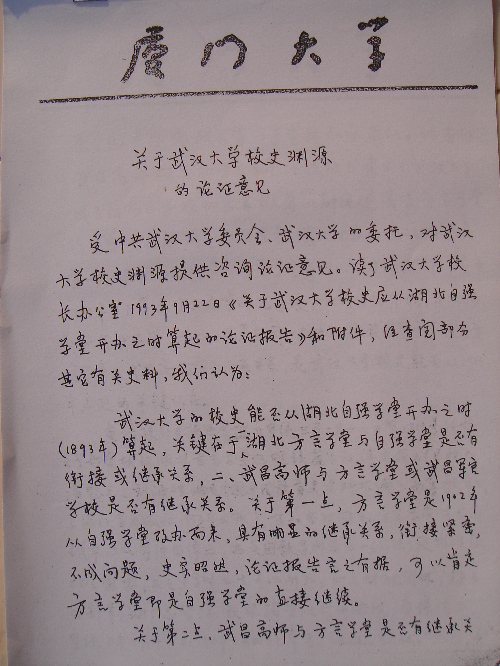 厦门大学
关于武汉大学校史渊源
的论证意见
受中共武汉大学委员会、武汉大学的委托，对武汉
大学校史渊源提供咨询论证意见。读了武汉大学校
长办公室1993年9月22日《关于武汉大学校史应从湖北自强
学堂开办之时算起的论证报告》和附件，经查阅部分
其它有关史料，我们认为：
武汉大学的校史能否从湖北自强学堂开办之时
(1893年)算起，关键在于一、湖北方言学堂与自强学堂是否有
衔接或继承关系，二、武昌高师与方言学堂或武昌军官
学校是否有继承关系。关于第一点，方言学堂是1902年
从自强学堂改办而来，具有明显的继承关系，衔接紧密，
不成问题，史实昭然，论证报告言之有据，可以肯定
方言学堂即是自强学堂的直接继续。
关于第二点，武昌高师与方言学堂是否有继承关